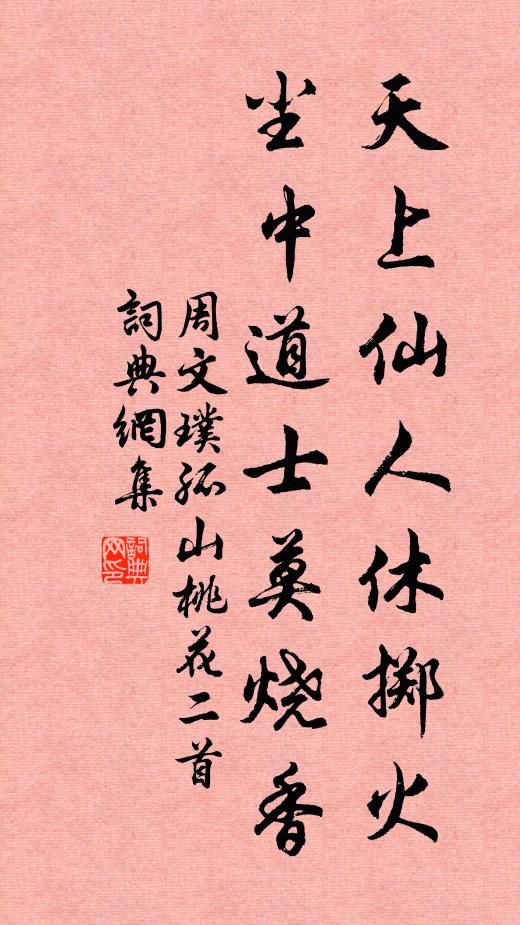 天上仙人休掷火
坐中道士莫烧香
周文璞孤山桃花二首
詞典網集
詞典网印